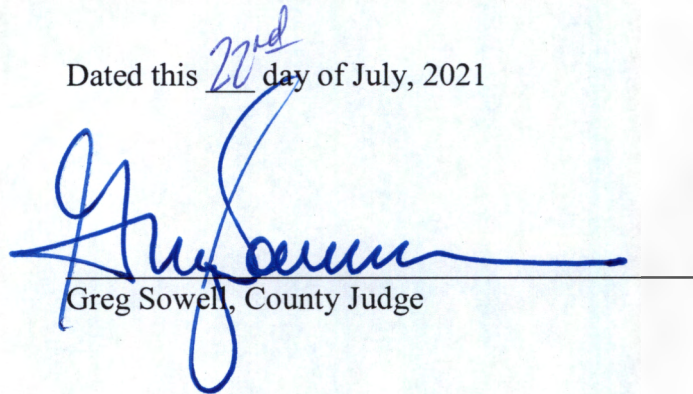 Dated this 22nd day of July, 2021
Greg Sowell
Greg Sowell, County Judge